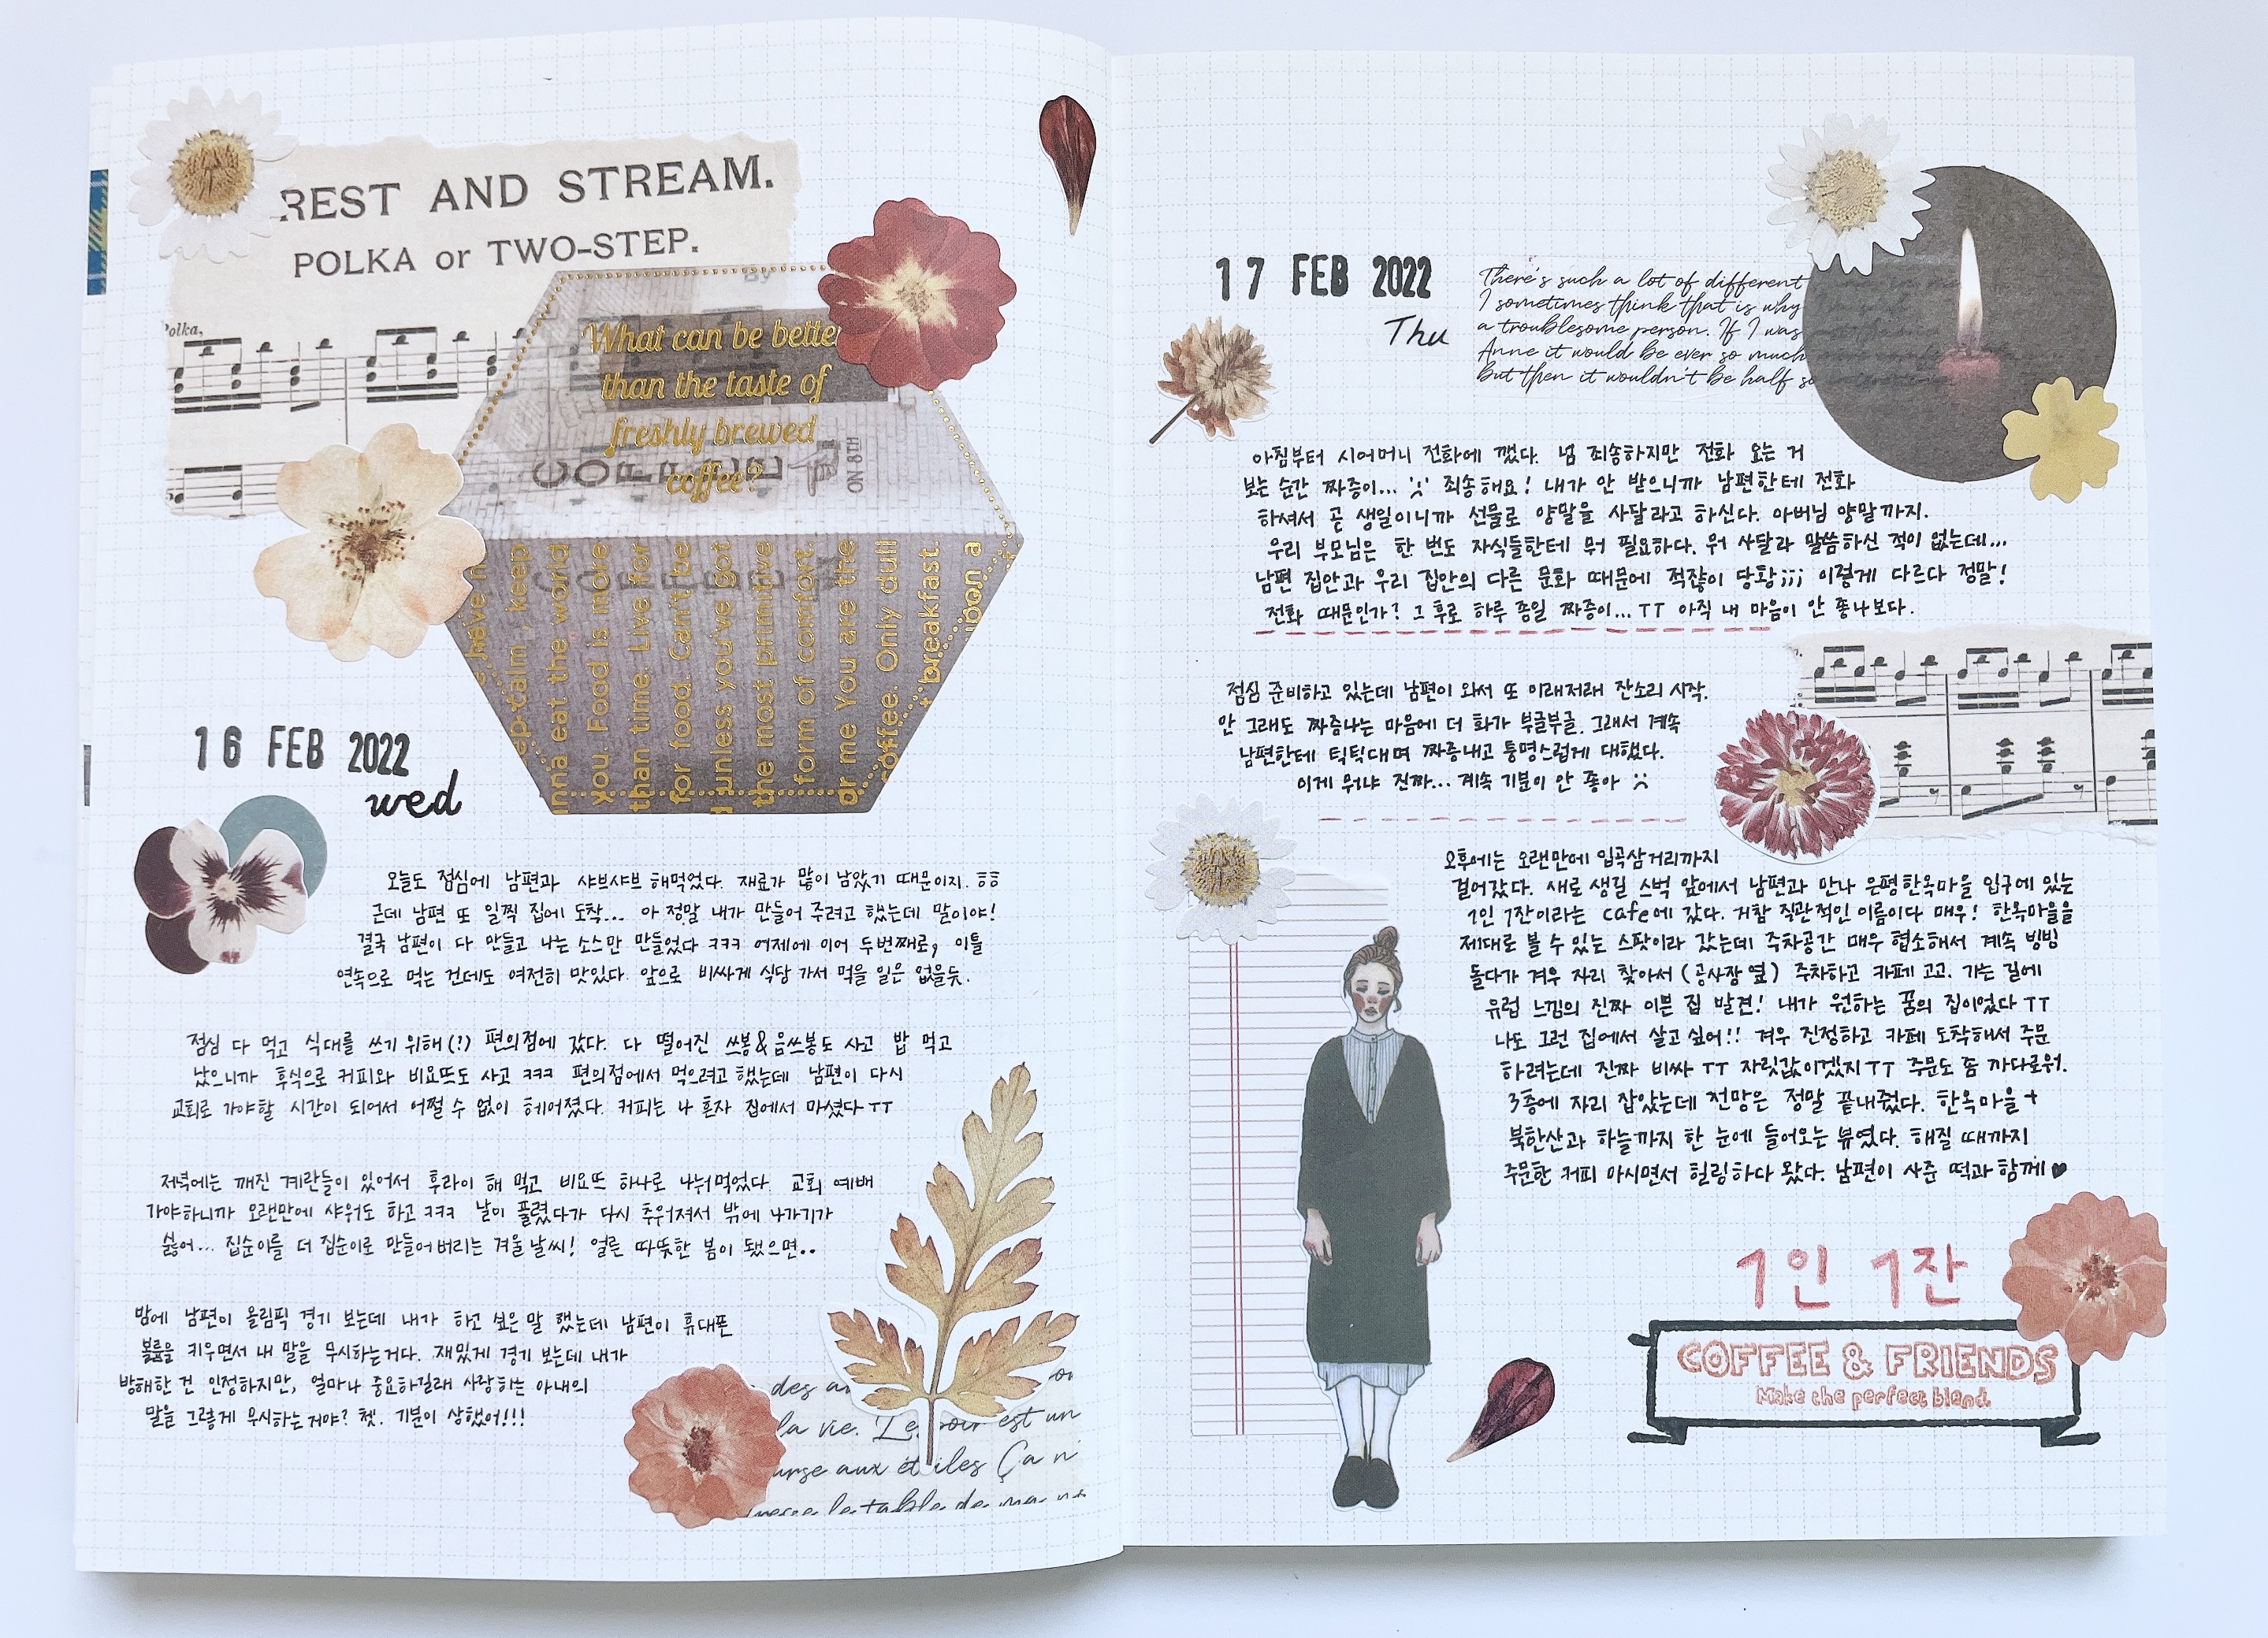 REST AND STREAM.
POLKA or TWO-STEP.
By
Polka,
What can be bette
than the taste of
freshly brewed
coffee?
COFFEE
ON 8TH
have n
ep calm, keep
nna eat the world
you. Food is more
than time. Live for
for food. Can't be
unless you've got
the most primitive
form of comfort.
or me You are the
coffee. Only dull
t breakfast.
upon a
16 FEB 2022
wed
오늘도 점심에 남편과 샤브샤브 해먹었다. 재료가 많이 남았기 때문이지. ㅎㅎ
근데 남편 또 일찍 집에 도착... 아 정말 내가 만들어 주려고 했는데 말이야!
결국 남편이 다 만들고 나는 소스만 만들었다 ㅋㅋㅋ 어제에 이어 두번째로, 이틀
연속으로 먹는 건데도 여전히 맛있다. 앞으로 비싸게 식당 가서 먹을 일은 없을듯.
점심 다 먹고 식대를 쓰기 위해(?) 편의점에 갔다. 다 떨어진 쓰봉&음쓰봉도 사고 밥 먹고
났으니까 후식으로 커피와 비요뜨도 사고 ㅋㅋㅋ 편의점에서 먹으려고 했는데 남편이 다시
교회로 가야할 시간이 되어서 어쩔 수 없이 헤어졌다. 커피는 나 혼자 집에서 마셨다 ㅜㅜ
저녁에는 깨진 계란들이 있어서 후라이 해 먹고 비요뜨 하나로 나눠먹었다. 교회 예배
가야하니까 오랜만에 샤워도 하고 ㅋㅋㅋ 날이 풀렸다가 다시 추워져서 밖에 나가기가
싫어... 집순이를 더 집순이로 만들어버리는 겨울날씨! 얼른 따뜻한 봄이 됐으면..
밤에 남편이 올림픽 경기 보는데 내가 하고 싶은 말 했는데 남편이 휴대폰
볼륨을 키우면서 내 말을 무시하는거다. 재밌게 경기 보는데 내가
방해한 건 인정하지만, 얼마나 중요하길래 사랑하는 아내의
말을 그렇게 무시하는거야? 쳇. 기분이 상했어!!!
des a
la vie. Le soir est un
urse aux étoiles Ça n'
resse le table de ma
17 FEB 2022
Thu
There's such a lot of different
I sometimes think that is why
a troublesome person. If I was
Anne it would be ever so much
but then it wouldn't be half so
아침부터 시어머니 전화에 깼다. 넘 죄송하지만 전화 오는 거
보는 순간 짜증이... 죄송해요! 내가 안 받으니까 남편한테 전화
하셔서 곧 생일이니까 선물로 양말을 사달라고 하신다. 아버님 양말까지.
우리 부모님은 한 번도 자식들한테 뭐 필요하다. 뭐 사달라 말씀하신 적이 없는데...
남편 집안과 우리 집안의 다른 문화 때문에 적잖이 당황;;; 이렇게 다르다 정말!
전화 때문인가? 그 후로 하루 종일 짜증이... ㅜㅜ 아직 내 마음이 안 좋나보다.
점심 준비하고 있는데 남편이 와서 또 이래저래 잔소리 시작.
안 그래도 짜증나는 마음에 더 화가 부글부글. 그래서 계속
남편한테 틱틱대며 짜증내고 퉁명스럽게 대했다.
이게 뭐냐 진짜... 계속 기분이 안 좋아
오후에는 오랜만에 입곡삼거리까지
걸어갔다. 새로 생길 스벅 앞에서 남편과 만나 은평한옥마을 입구에 있는
1인 1잔이라는 cafe에 갔다. 거참 직관적인 이름이다 매우! 한옥마을을
제대로 볼 수 있는 스팟이라 갔는데 주차공간 매우 협소해서 계속 빙빙
돌다가 겨우 자리 찾아서 (공사장 옆) 주차하고 카페 고고. 가는 길에
유럽 느낌의 진짜 이쁜 집 발견! 내가 원하는 꿈의 집이었다 ㅜㅜ
나도 그런 집에서 살고 싶어!! 겨우 진정하고 카페 도착해서 주문
하려는데 진짜 비싸 ㅜㅜ 자릿값이겠지 ㅜㅜ 주문도 좀 까다로워.
3층에 자리 잡았는데 전망은 정말 끝내줬다. 한옥마을+
북한산과 하늘까지 한 눈에 들어오는 뷰였다. 해질 때까지
주문한 커피 마시면서 힐링하다 왔다. 남편이 사준 떡과 함께♥
1인 1잔
COFFEE & FRIENDS
Make the perfect blend.